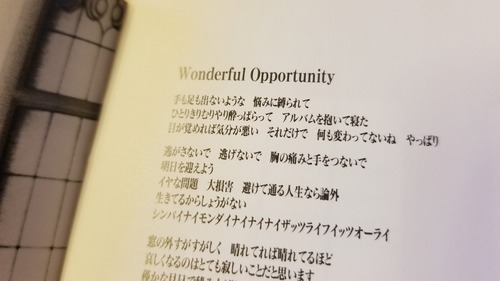 Wonderful Opportunity
手も足も出ないような　悩みに縛られて
ひとりきりむりやり酔っぱらって　アルバムを抱いて寝た
目が覚めれば気分が悪い　それだけで　何も変わってないね　やっぱり
逃がさないで　逃げないで　胸の痛みと手をつないで
明日を迎えよう
イヤな問題　大損害　避けて通る人生なら論外
生きてるからしょうがない
シンパイナイモンダイナイナイナイザッツライフイッツオーライ
窓の外すがすがしく　晴れてれば晴れてるほど
哀しくなるのはとても寂しいことだと思います